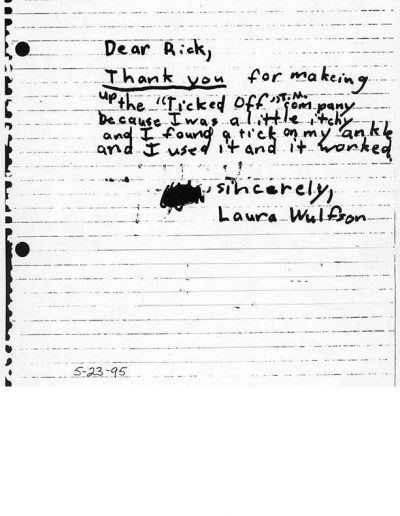 Dear Rick,
Thank you for makeing
up the "Ticked Off"T.M. company
because I was a little itchy
and I found a tick on my ankle
and I used it and it worked
sincerely,
Laura Wulfson
5-23-95